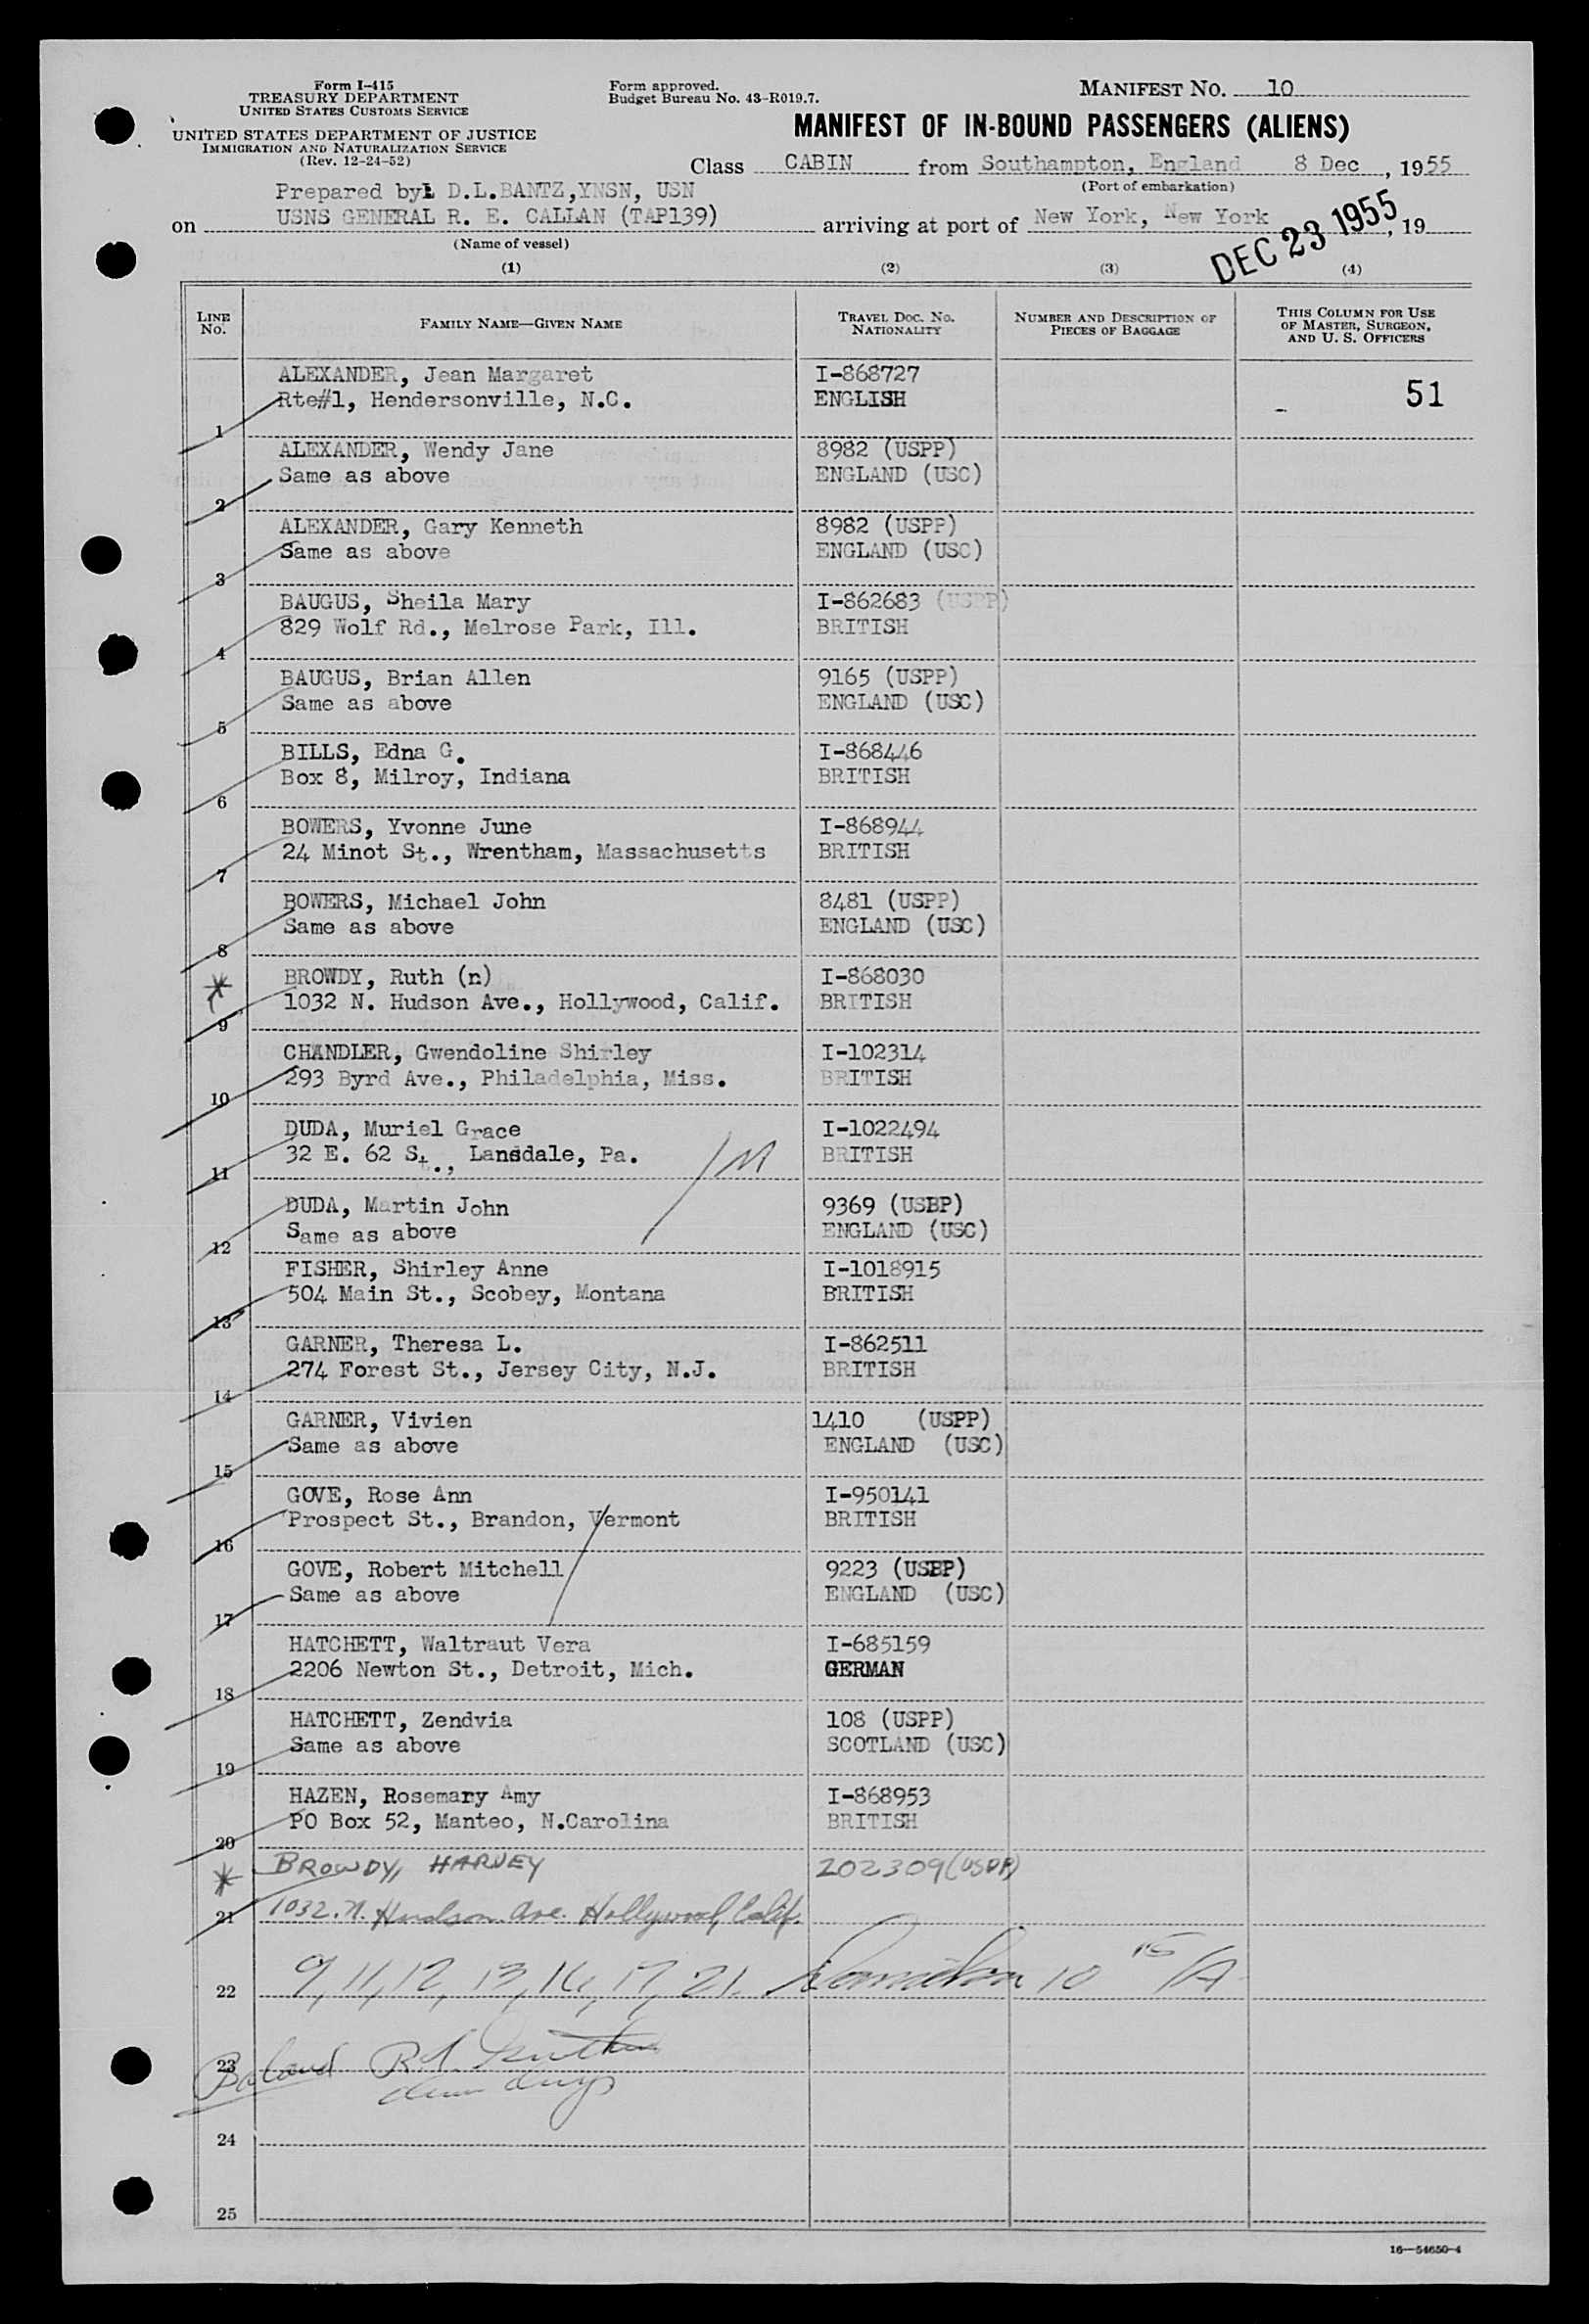 Form I-415
TREASURY DEPARTMENT
UNITED STATES CUSTOMS SERVICE
UNITED STATES DEPARTMENT OF JUSTICE
IMMIGRATION AND NATURALIZATION SERVICE
(Rev. 12-24-52)
Form approved.
Budget Bureau No. 43-R019.7.
MANIFEST NO. 10
MANIFEST OF IN-BOUND PASSENGERS (ALIENS)
Class CABIN from Southampton, England 8 Dec, 1955
(Port of embarkation)
Prepared by: D.L.BANTZ,YNSN, USN
on USNS GENERAL R. E. CALLAN (TAP139) arriving at port of New York, New York, 19
DEC 23 1955
(Name of vessel)
(1) (2) (3) (4)
LINE No. FAMILY NAME—GIVEN NAME TRAVEL DOC. NO. NATIONALITY NUMBER AND DESCRIPTION OF PIECES OF BAGGAGE THIS COLUMN FOR USE OF MASTER, SURGEON, AND U. S. OFFICERS
ALEXANDER, Jean Margaret I-868727
Rte#1, Hendersonville, N.C. ENGLISH 51
1
ALEXANDER, Wendy Jane 8982 (USPP)
Same as above ENGLAND (USC)
2
ALEXANDER, Gary Kenneth 8982 (USPP)
Same as above ENGLAND (USC)
3
BAUGUS, Sheila Mary I-862683 (USPP)
829 Wolf Rd., Melrose Park, Ill. BRITISH
4
BAUGUS, Brian Allen 9165 (USPP)
Same as above ENGLAND (USC)
5
BILLS, Edna G. I-868446
Box 8, Milroy, Indiana BRITISH
6
BOWERS, Yvonne June I-868944
24 Minot St., Wrentham, Massachusetts BRITISH
7
BOWERS, Michael John 8481 (USPP)
Same as above ENGLAND (USC)
8
* BROWDY, Ruth (n) I-868030
1032 N. Hudson Ave., Hollywood, Calif. BRITISH
9
CHANDLER, Gwendoline Shirley I-102314
293 Byrd Ave., Philadelphia, Miss. BRITISH
10
DUDA, Muriel Grace I-1022494
32 E. 62 St., Lansdale, Pa. BRITISH
11
DUDA, Martin John 9369 (USPP)
Same as above ENGLAND (USC)
12
FISHER, Shirley Anne I-1018915
504 Main St., Scobey, Montana BRITISH
13
GARNER, Theresa L. I-862511
274 Forest St., Jersey City, N.J. BRITISH
14
GARNER, Vivien 1410 (USPP)
Same as above ENGLAND (USC)
15
GOVE, Rose Ann I-950141
Prospect St., Brandon, Vermont BRITISH
16
GOVE, Robert Mitchell 9223 (USPP)
Same as above ENGLAND (USC)
17
HATCHETT, Waltraut Vera I-685159
2206 Newton St., Detroit, Mich. GERMAN
18
HATCHETT, Zendvia 108 (USPP)
Same as above SCOTLAND (USC)
19
HAZEN, Rosemary Amy I-868953
PO Box 52, Manteo, N.Carolina BRITISH
20
* BROWDY, HARVEY 202309 (USPP)
21 1032. N. Hudson Ave. Hollywood, Calif.
22 9, 11, 12, 13, 16, 17, 21. 10 15/A
23
24
25
16—54650-4